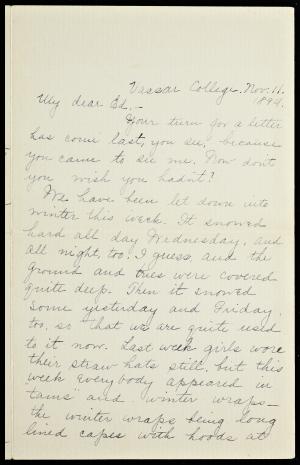 Vassar College. Nov. 11.
1894.
My dear Ed.-
Your turn for a letter
has come last, you see, because
you came to see me. Now don't
you wish you hadn't?
We have been let down into
winter this week. It snowed
hard all day Wednesday, and
all night, too, I guess, and the
ground and trees were covered
quite deep. Then it snowed
some yesterday and Friday,
too, so that we are quite used
to it now. Last week girls wore
their straw hats still, but this
week everybody appeared in
"tams" and winter wraps-
the winter wraps being long
lined capes with hoods at